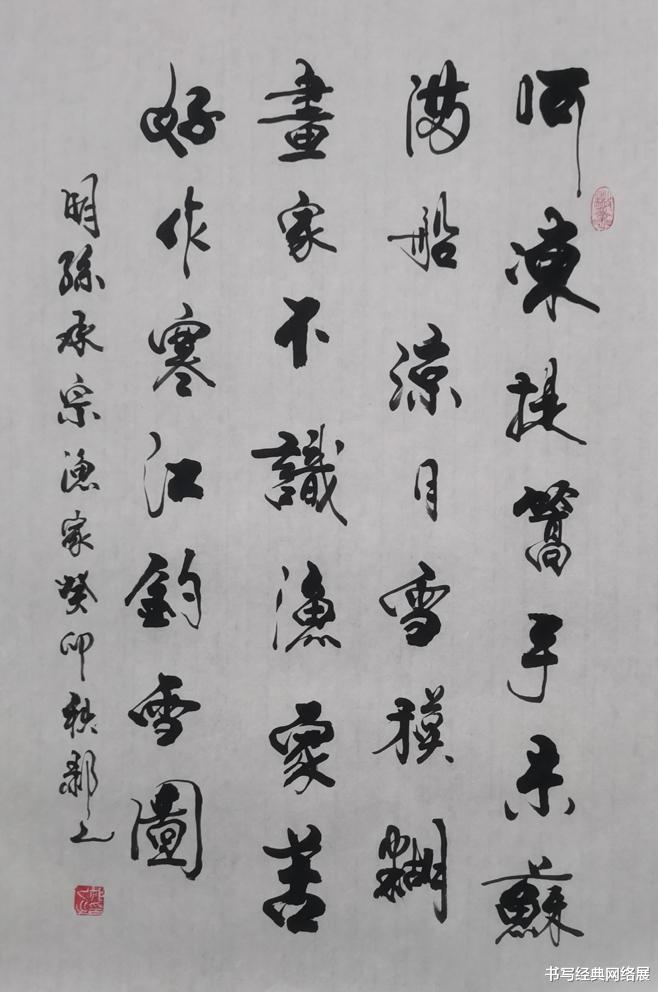 呵凍提篙手未蘇
滿船涼月雪模糊
畫家不識漁家苦
好作寒江釣雪圖
明孫承宗漁家癸卯秋郝上
书写经典网络展